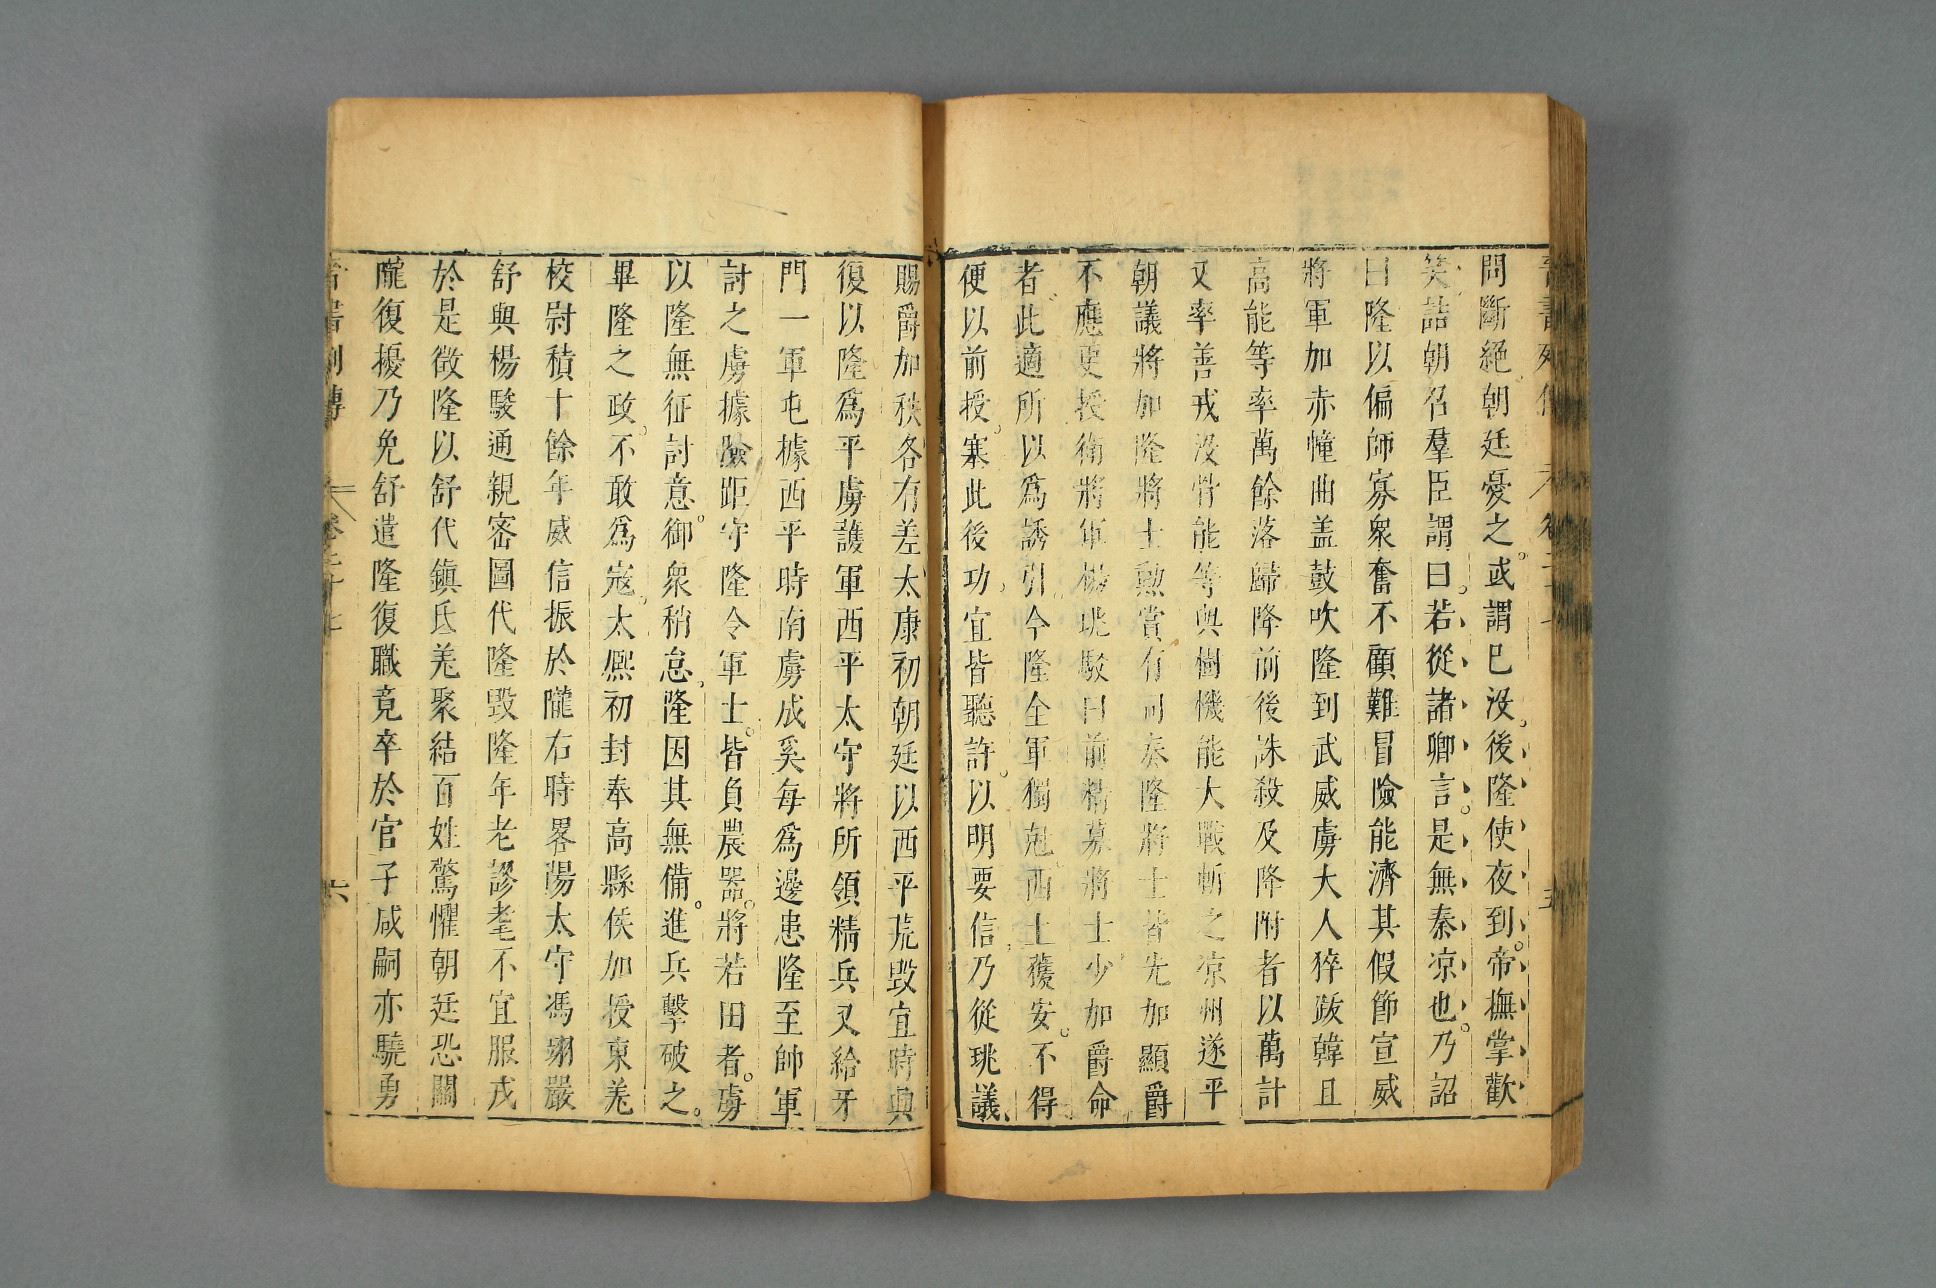 問斷絕朝廷憂之或謂已没後隆使夜到帝撫掌歡
笑詰朝召羣臣謂曰若從諸卿言是無秦凉也乃詔
曰隆以偏師寡衆奮不顧難冒險能濟其假節宣威
將軍加赤幢曲盖鼓吹隆到武威虜大人猝跋韓且
高能等率萬餘落歸降前後誅殺及降附者以萬計
又率善戎没骨能等與樹機能大戰斬之凉州遂平
朝議將加隆將士勲賞有司奏隆將士皆先加顯爵
不應更授衛將軍楊珧駮曰前精募將士少加爵命
者此適所以爲誘引今隆全軍獨尅西土獲安不得
便以前授塞此後功宜皆聽許以明要信乃從珧議
賜爵加秩各有差太康初朝廷以西平荒毁宜時興
復以隆爲平虜護軍西平太守將所領精兵又給牙
門一軍屯據西平時南虜成奚每爲邊患隆至帥軍
討之虜據險距守隆令軍士皆負農噐將若田者虜
以隆無征討意御衆稍怠隆因其無備進兵擊破之
畢隆之政不敢爲寇太熈初封奉高縣侯加授東羌
校尉積十餘年威信振於隴右時畧陽太守馮翊嚴
舒與楊駿通親密圖代隆毁隆年老謬耄不宜服戎
於是徵隆以舒代鎮氐羌聚結百姓驚懼朝廷恐關
隴復擾乃免舒遣隆復職竟卒於官子咸嗣亦驍勇
晋書列傳 卷二十七 六